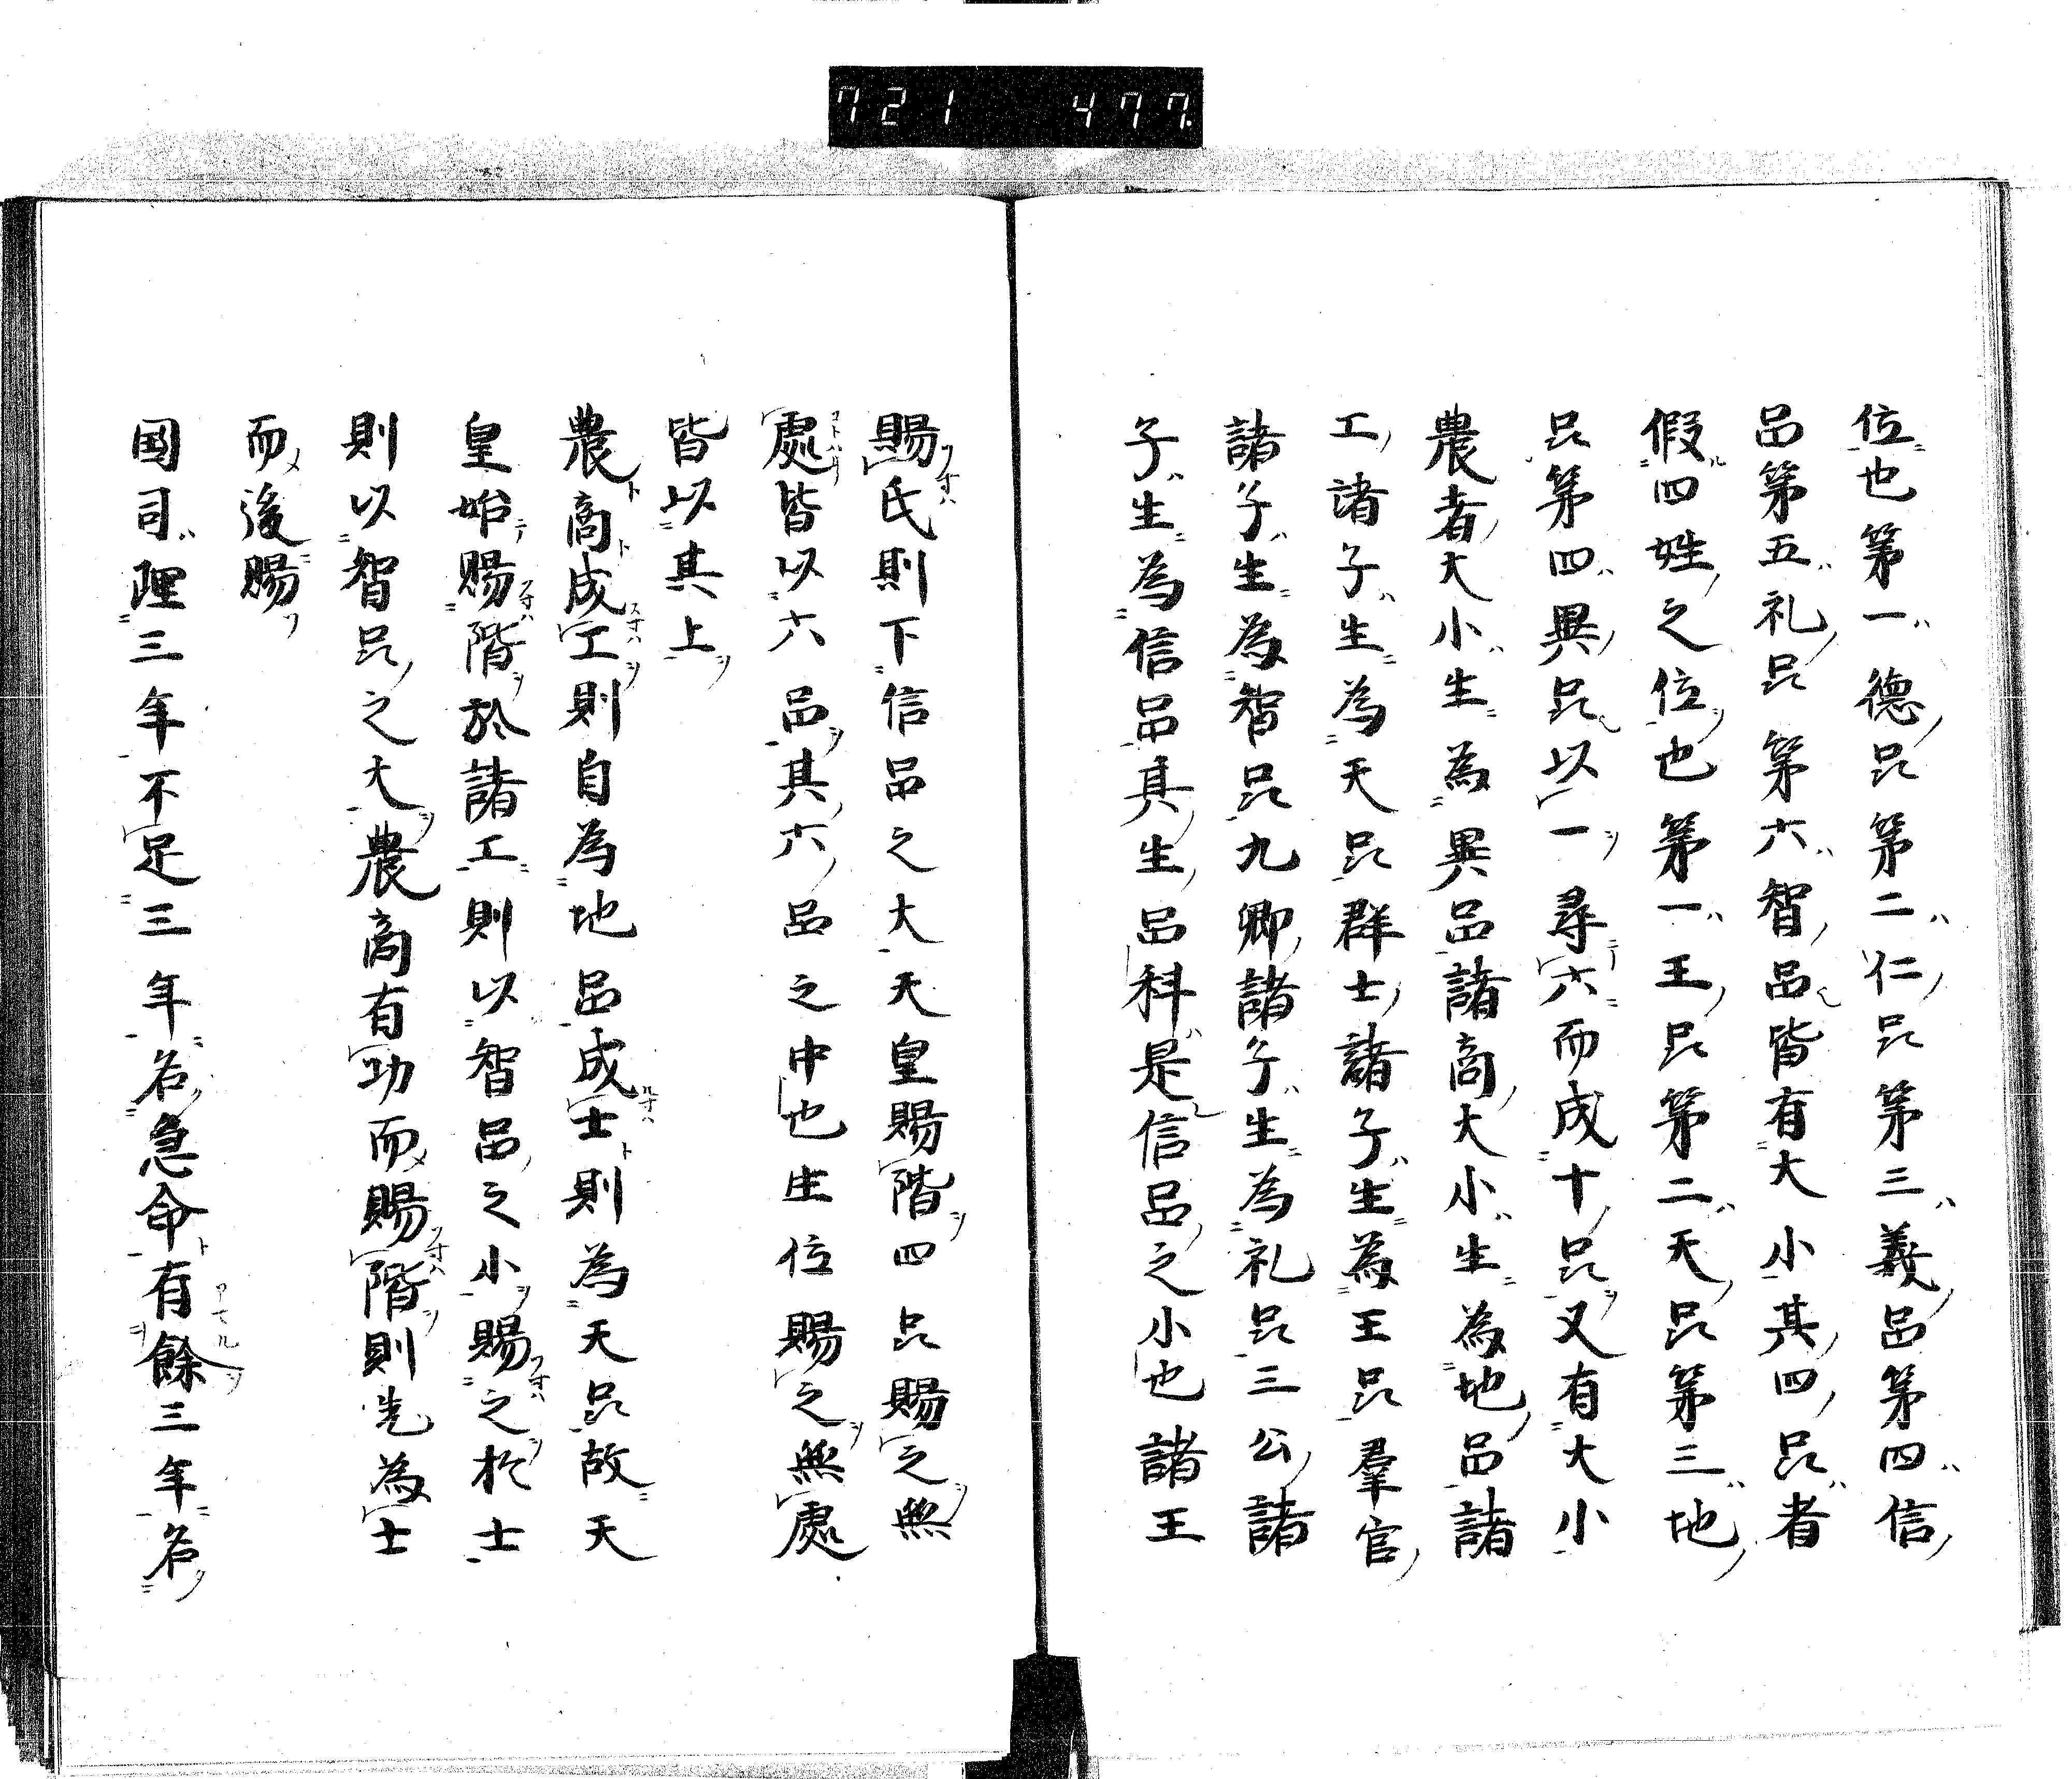 721 477.
位也第一德品第二仁品第三義品第四信
品第五礼品第六智品皆有大小其四品者
假四姓之位也第一王品第二天品第三地
品第四異品以一尋六而成十品又有大小
農者大小生為異品諸商大小生為地品諸
工諸子生為天品群士諸子生為王品羣官
諸子生為智品九卿諸子生為礼品三公諸
子生為信品其生品科是信品之小也諸王
賜氏則下信品之大天皇賜階四品賜之無
處皆以六品其六品之中也生位賜之無處
皆以其上
農商成工則自為地品成士則為天品故天
皇始賜階於諸工則以智品之小賜之於士
則以智品之大農商有功而賜階則先為士
而後賜
国司理三年不足三年名急命有餘三年名